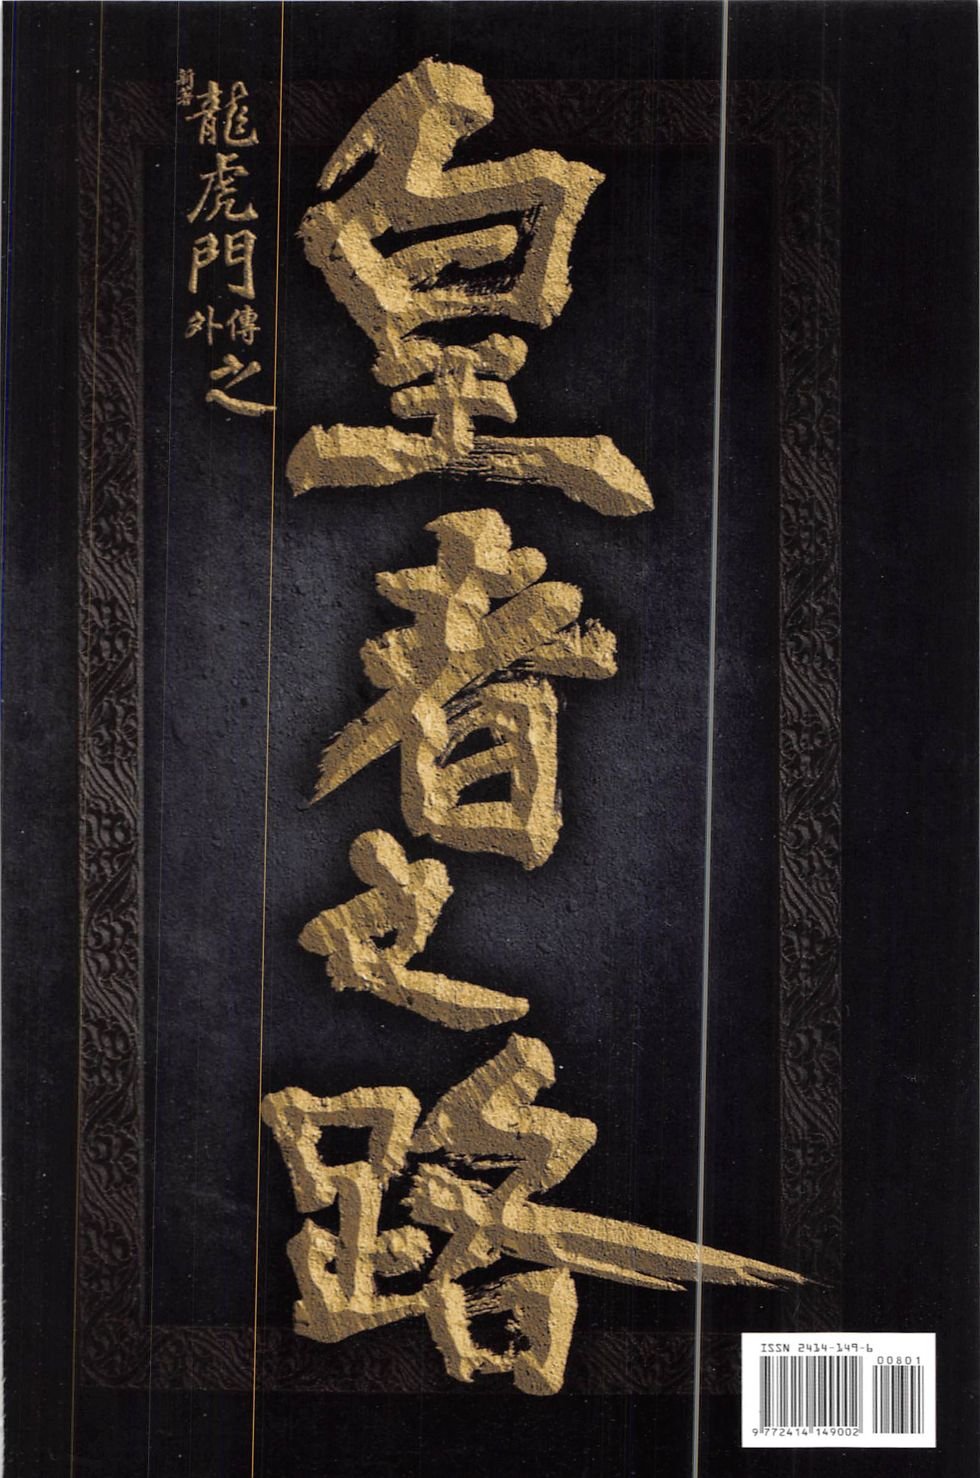 新著
龍虎門
外傳
之
皇者之路
ISSN 2414-149-6
00801
9 772414 149002